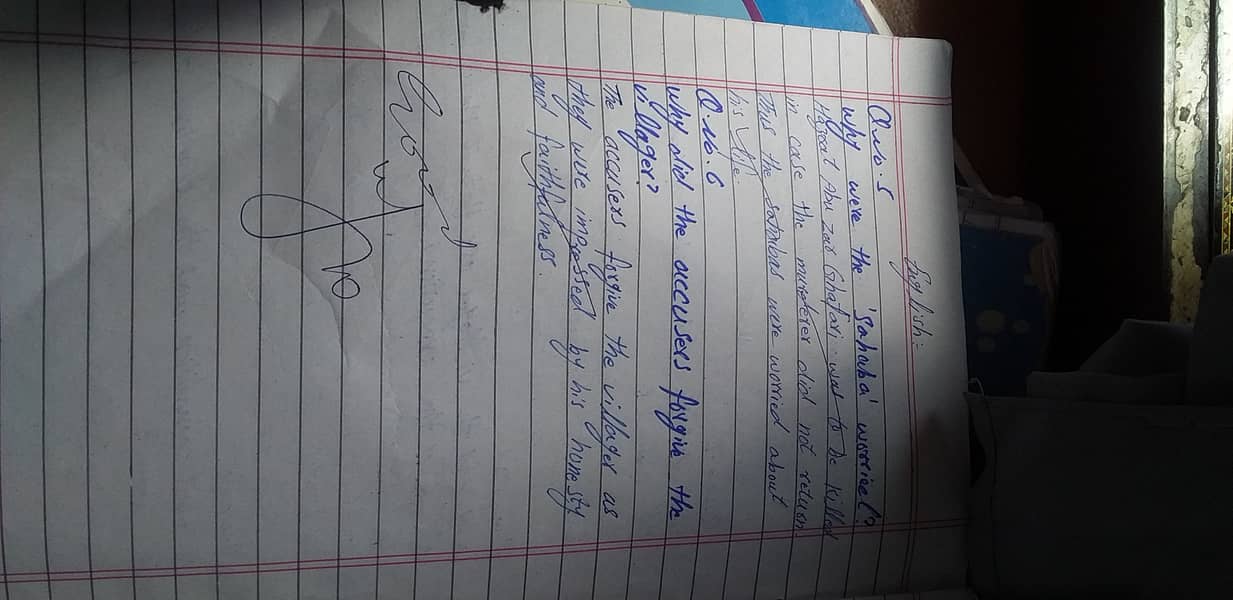 English:
Q.no.5
Why were the 'sahaba' worried?
Hazrat Abu Zar Ghafari was to be killed
in case the murderer did not return
Thus the sahabas were worried about
his life.
Q.no.6
Why did the accusers forgive the
villager?
The accusers forgive the villager as
they were impressed by his honesty
and faithfulness.